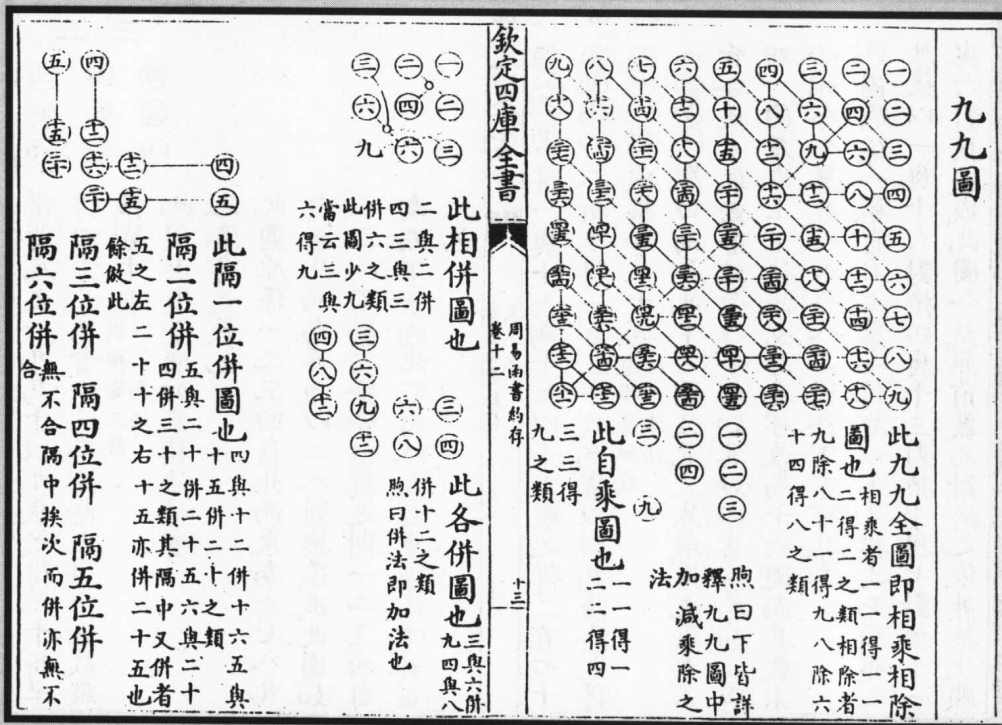 九九圖
一二三四五六七八九
二四六八十十二十四十六十八
三六九十二十五十八二十一二十四二十七
四八十二十六二十二十四二十八三十二三十六
五十十五二十二十五三十三十五四十四十五
六十二十八二十四三十三十六四十二四十八五十四
七十四二十一二十八三十五四十二四十九五十六六十三
八十六二十四三十二四十四十八五十六六十四七十二
九十八二十七三十六四十五五十四六十三七十二八十一
此九九全圖即相乘相除
圖也
相乘者一一得一一
二得二之類相除者
九除八十一得九八除六
十四得八之類
煦曰下皆詳
釋九九圖中
加減乘除之
法
一二三
二四
三
九
此自乘圖也
一一得一
二二得四
三三得
九之類
欽定四庫全書
周易函書約存
卷十二
十三
一二三
二四六
三六九
此相併圖也
二與二併
四三與三
併六之類
此圖少九
當云三與
六得九
三四
六八
三六九十二
四八十二
此各併圖也
三與六併
九四與八
併十二之類
煦曰併法即加法也
四五
十二十五
四十二十六二十
五十五二十
此隔一位併圖也
四與十二併十六五與
十五併二十之類
隔二位併
五與二十併二十五六與二十
四併三十之類其隔中又併者
五之左二十之右十五亦併二十五也
餘倣此
隔三位併 隔四位併 隔五位併
隔六位併
無不合隔中挨次而併亦無不
合